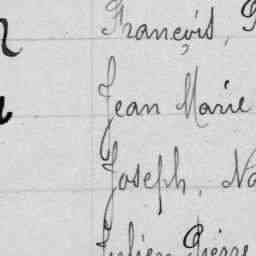 François,
Jean Marie
Joseph, No
Julien Pierre